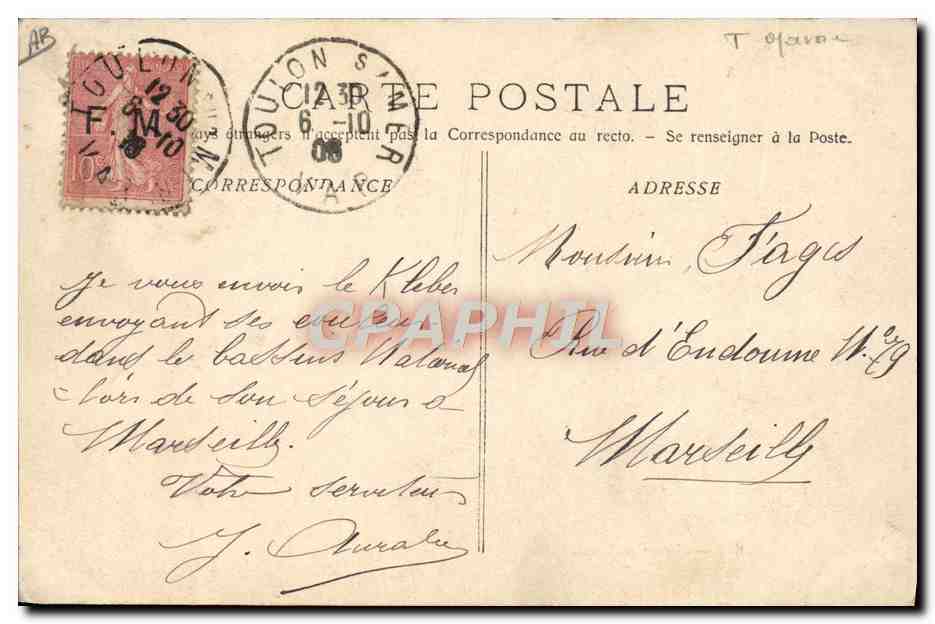 AB
TOULON S/MER
12 30
6 -10
VAR
F. M.
10
TOULON S/MER
12 30
6 -10
08
VAR
CARTE POSTALE
ays étrangers n'acceptent pas la Correspondance au recto. - Se renseigner à la Poste.
CORRESPONDANCE
Je vous envois le Kleber
envoyant ses couleurs
dans le bassins National
lors de son séjour à
Marseille.
Votre serviteur
J.
ADRESSE
Monsieur Fages
Rue d'Endoume N°
Marseille
CPAPHIL